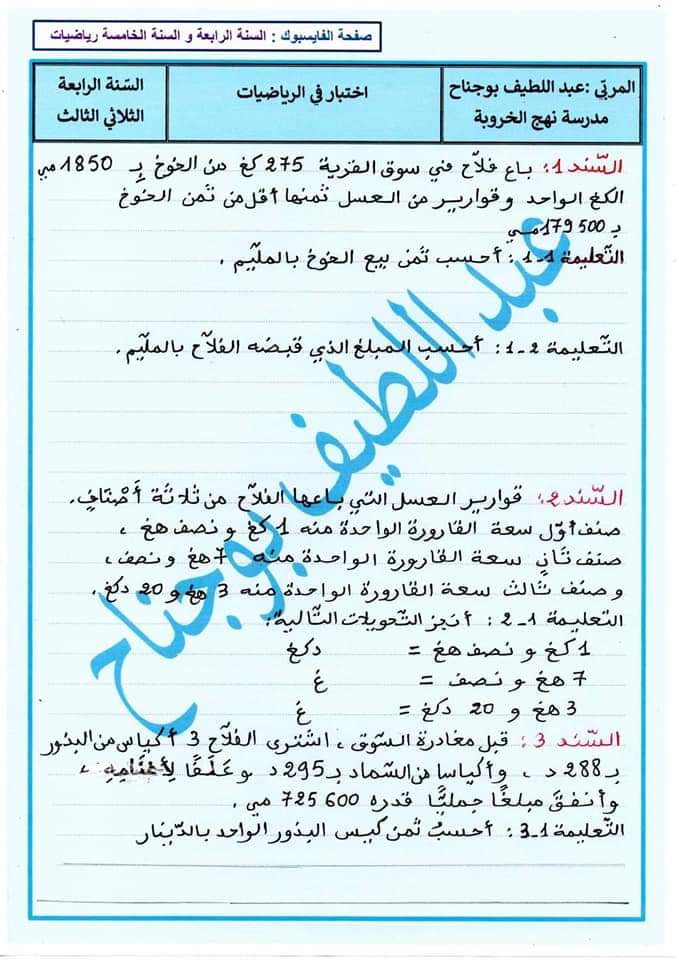 صفحة الفايسبوك : السنة الرابعة و السنة الخامسة رياضيات
المربّي :عبد اللطيف بوجناح
مدرسة نهج الخروبة
اختبار في الرياضيات
السّنة الرابعة
الثلاثي الثالث
السّند 1: باع فلاّح في سوق القرية 275 كغ من الخوخ بـ 1850 مي
الكغ الواحد و قوارير من العسل ثمنها أقل من ثمن الخوخ
بـ 179500 مي
التّعليمة 1-1 : أحسب ثمن بيع الخوخ بالملّيم .
التّعليمة 2-1 : أحسب المبلغ الذي قبضه الفلاّح بالملّيم .
السّند 2: قوارير العسل التي باعها الفلاّح من ثلاثة أَصْنَافٍ.
صنف أوّل سعة القارورة الواحدة منه 1 كغ و نصف هغ ،
صنف ثانٍ سعة القارورة الواحدة منه 7 هغ و نصف ،
و صنف ثالث سعة القارورة الواحدة منه 3 هغ و 20 دكغ .
التّعليمة 1-2 : أنجز التّحويلات التّالية:
1 كغ و نصف هغ = دكغ
7 هغ و نصف = غ
3 هغ و 20 دكغ = غ
السّند 3 : قبل مغادرة السّوق ، اشترى الفلاّح 3 أكياس من البذور
بـ 288 د ، وأكياسا من السّماد بـ 295 د و عَلَفًا لِأَغْنَامِهِ ،
وأنفق مبلغًا جمليًّا قدره 725600 مي .
التّعليمة 1-3 : أحسبُ ثمن كيس البذور الواحد بالدّينار
عبد اللطيف بوجناح